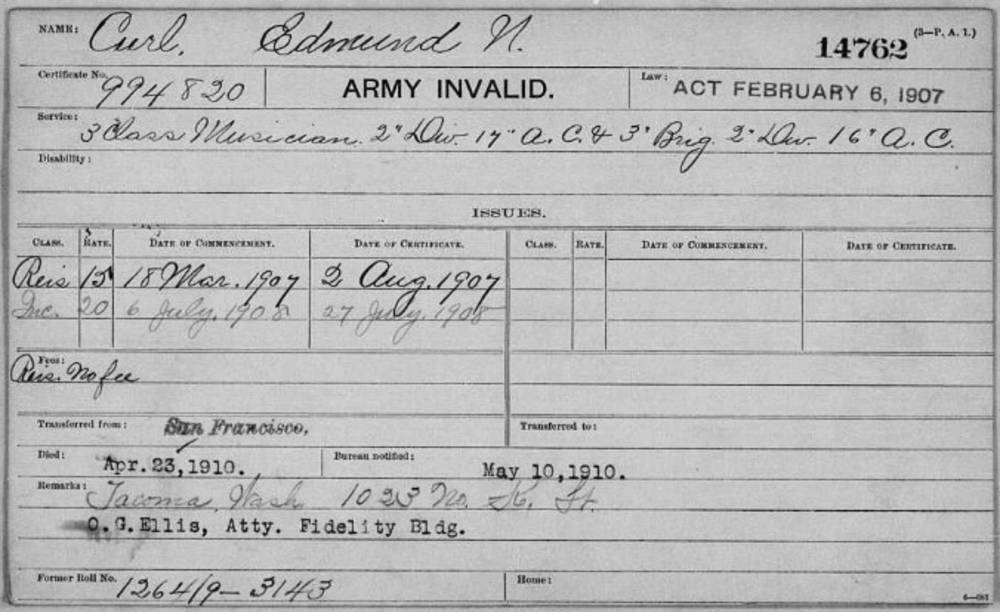 NAME: Curl, Edmund N. 14762 (3—P. A. I.)
Certificate No. 994820 ARMY INVALID. Law: ACT FEBRUARY 6, 1907
Service: 3 Class Musician. 2" Div. 17" A. C. & 3" Brig. 2" Div. 16" A. C.
Disability:
ISSUES.
CLASS. RATE. DATE OF COMMENCEMENT. DATE OF CERTIFICATE. CLASS. RATE. DATE OF COMMENCEMENT. DATE OF CERTIFICATE.
Reis 15 18 Mar. 1907 2 Aug. 1907
Inc. 20 6 July. 1908 27 July. 1908
Fees:
Reis. No fee
Transferred from: San Francisco. Transferred to:
Died: Apr. 23, 1910. Bureau notified: May 10, 1910.
Remarks: Tacoma, Wash 1023 No. K. St.
O.G.Ellis, Atty. Fidelity Bldg.
Former Roll No. 126419—3143 Home: